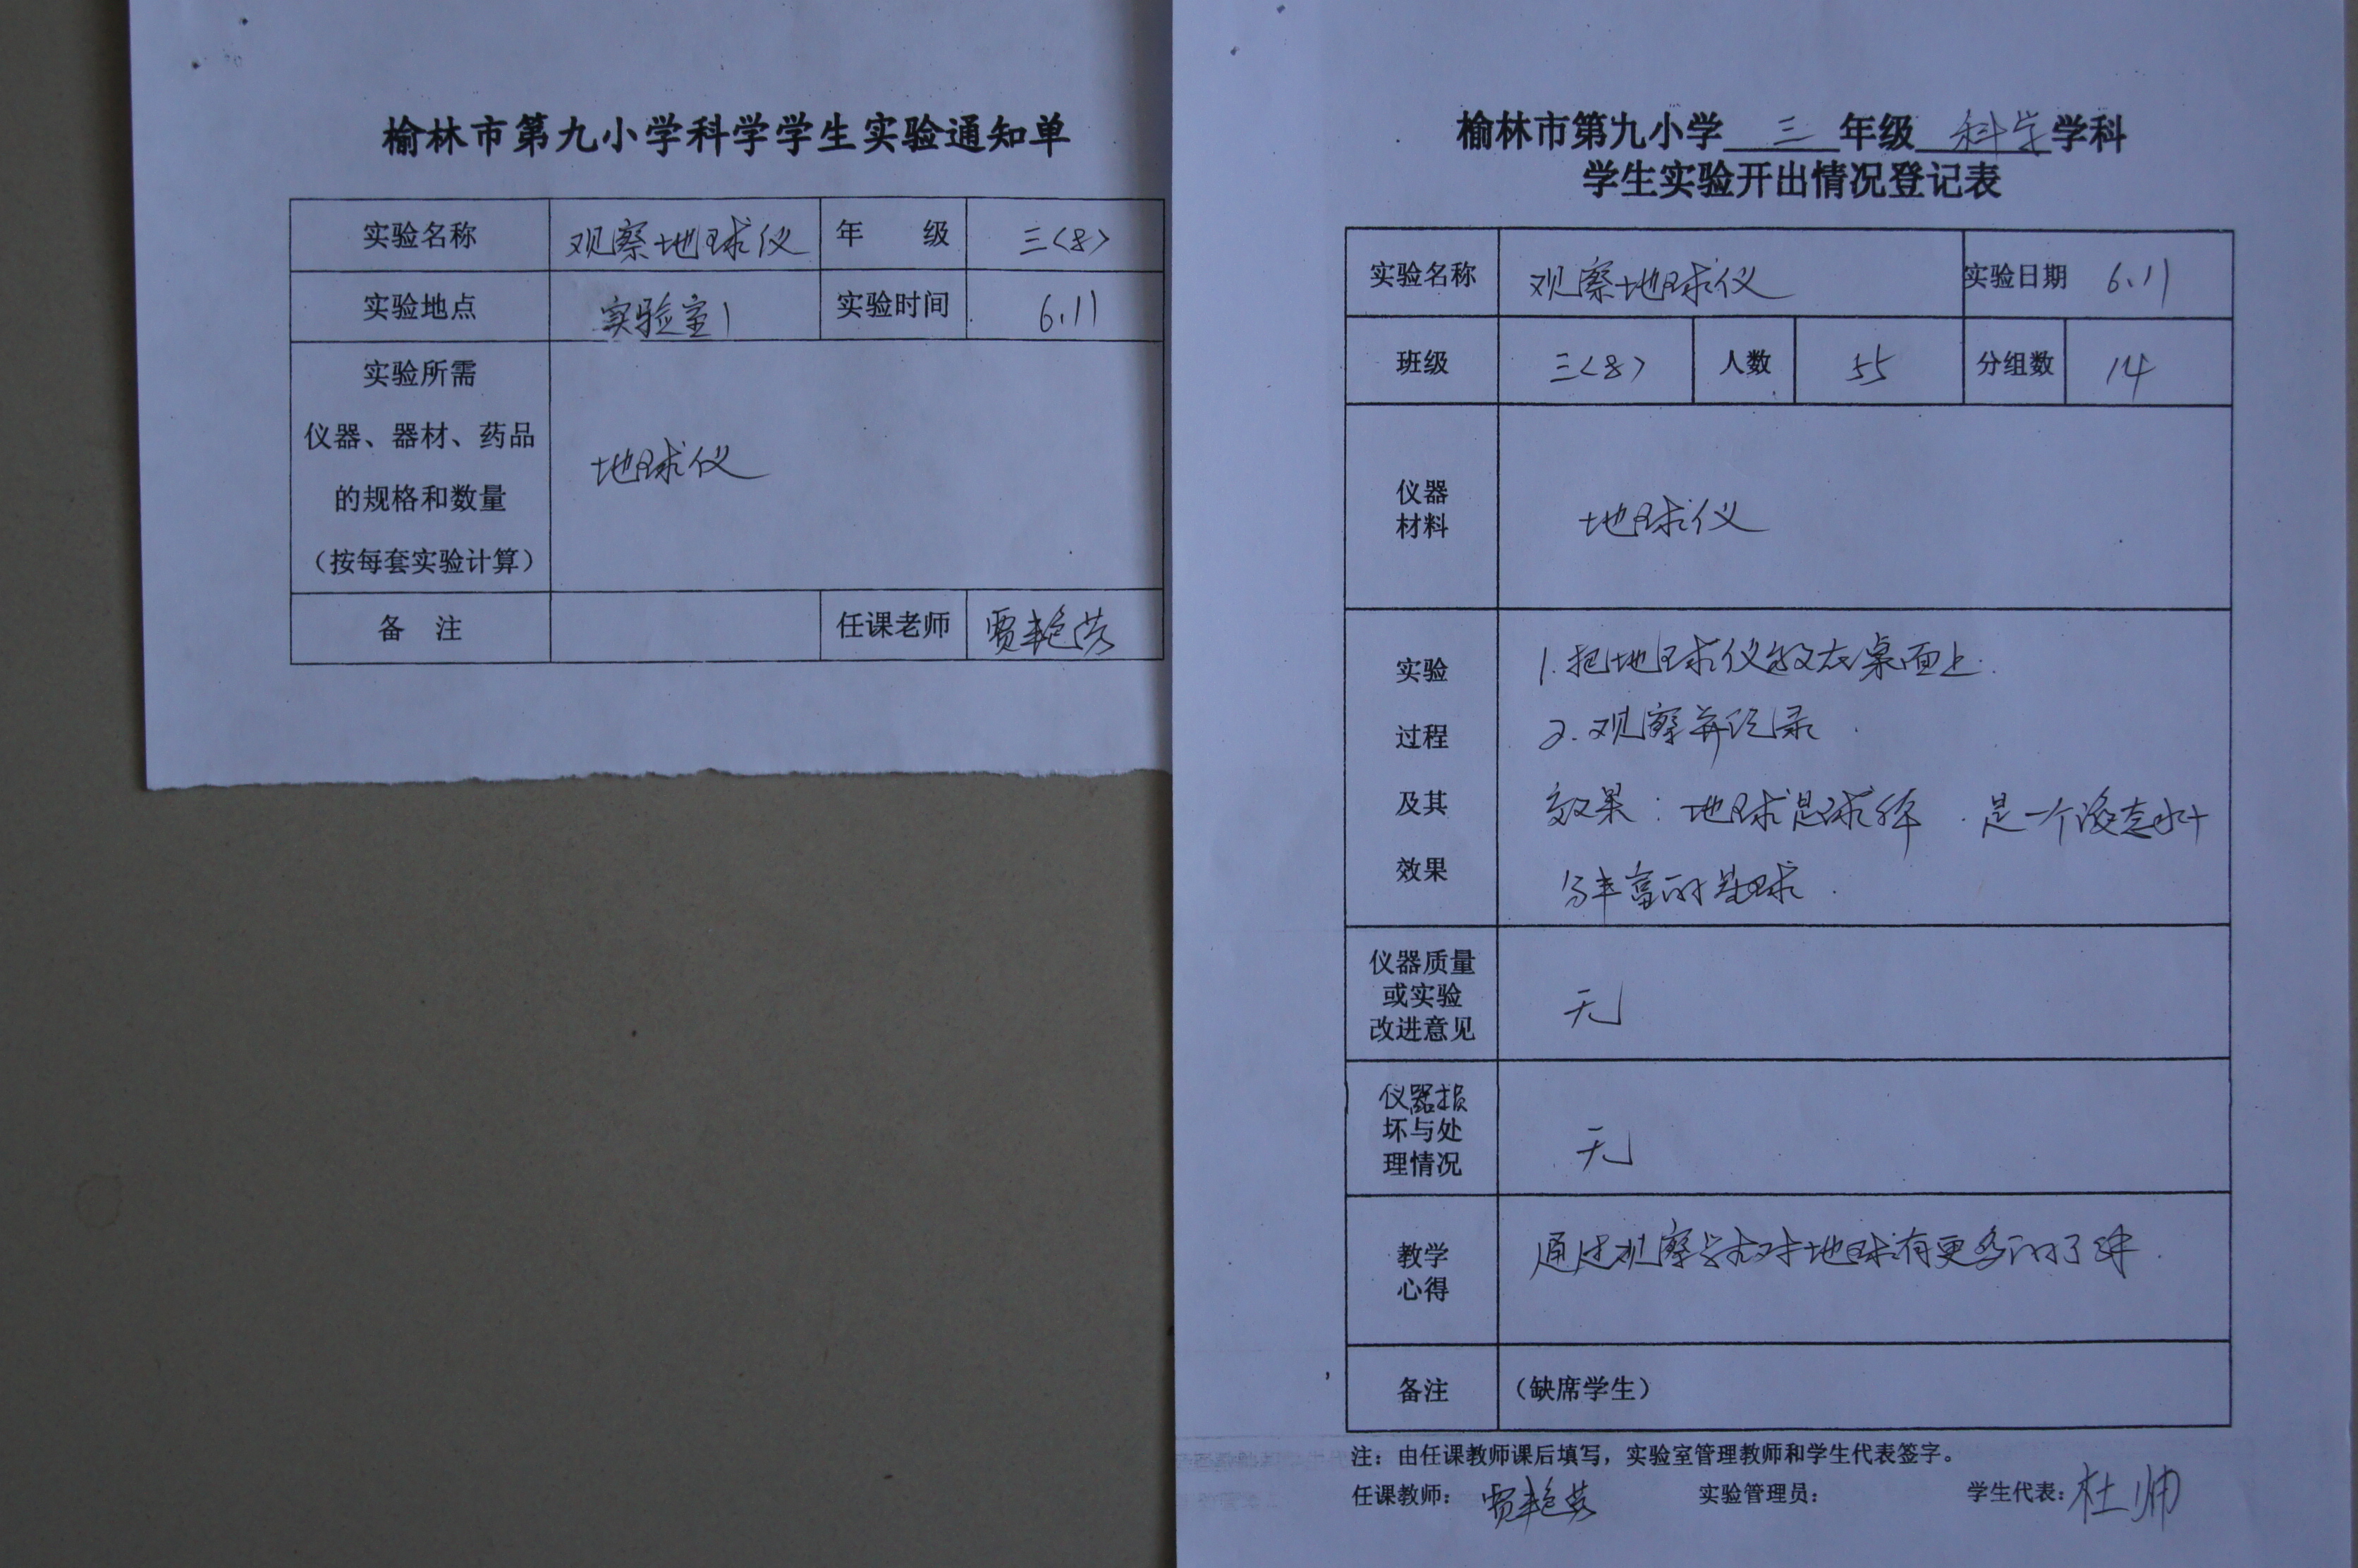 榆林市第九小学科学学生实验通知单
实验名称 观察地球仪 年 级 三<8>
实验地点 实验室1 实验时间 6.11
实验所需
仪器、器材、药品
的规格和数量
（按每套实验计算）
地球仪
备 注 任课老师 贾艳芳
榆林市第九小学 三 年级 科学 学科
学生实验开出情况登记表
实验名称 观察地球仪 实验日期 6.11
班级 三<8> 人数 55 分组数 14
仪器
材料
地球仪
实验
过程
及其
效果
1.把地球仪放在桌面上.
2.观察并记录.
效果：地球是球体.是一个液态水十
分丰富的星球.
仪器质量
或实验
改进意见
无
仪器损
坏与处
理情况
无
教学
心得
通过观察学生对地球有更多的了解.
备注 （缺席学生）
注：由任课教师课后填写，实验室管理教师和学生代表签字。
任课教师： 贾艳芳 实验管理员： 学生代表：杜帅